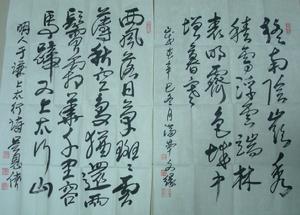 终南陰嶺秀
積雪浮雲端林
表明霽色城中
增暮寒
西風落日草斑斑雲
薄秋空鳥獨還兩
鬢霜華千里客
馬蹄又上太行山
明人于谦上太行詩